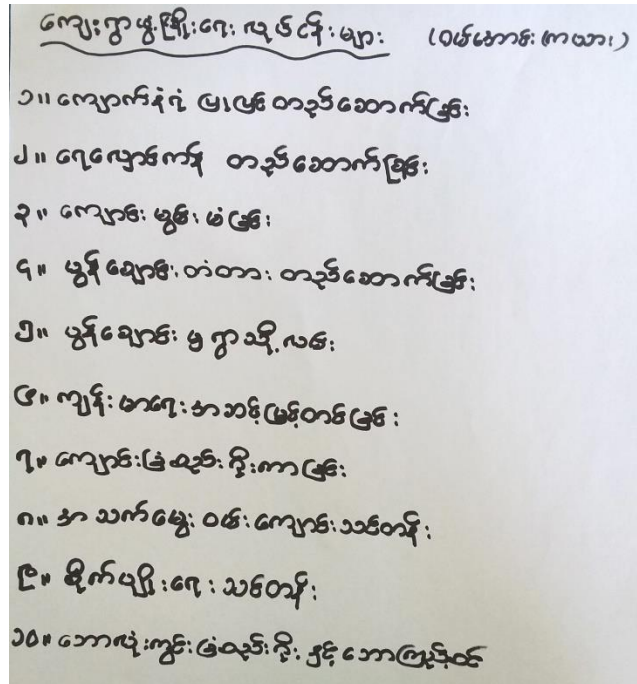 ကျေးရွာဖွံ့ဖြိုးရေး လုပ်ငန်းများ (ဝမ်အောင်းကယား)
၁။ ကျောက်နံရံ ပြုပြင် တည်ဆောက်ခြင်း
၂။ ရေလှောင်ကန် တည်ဆောက်ခြင်း
၃။ ကျောင်း မွမ်းမံခြင်း
၄။ မွန်ချောင်း တံတား တည်ဆောက်ခြင်း
၅။ မွန်ချောင်း မှ ရွာသို့ လမ်း
၆။ ကျန်းမာရေး အဆင့်မြှင့်တင်ခြင်း
၇။ ကျောင်းခြံစည်းရိုးကာခြင်း
၈။ အသက်မွေး ဝမ်းကျောင်းသင်တန်း
၉။ စိုက်ပျိုးရေး သင်တန်း
၁၀။ ဘောလုံးကွင်းခြံစည်းရိုး နှင့် ဘောကြည့်စင်